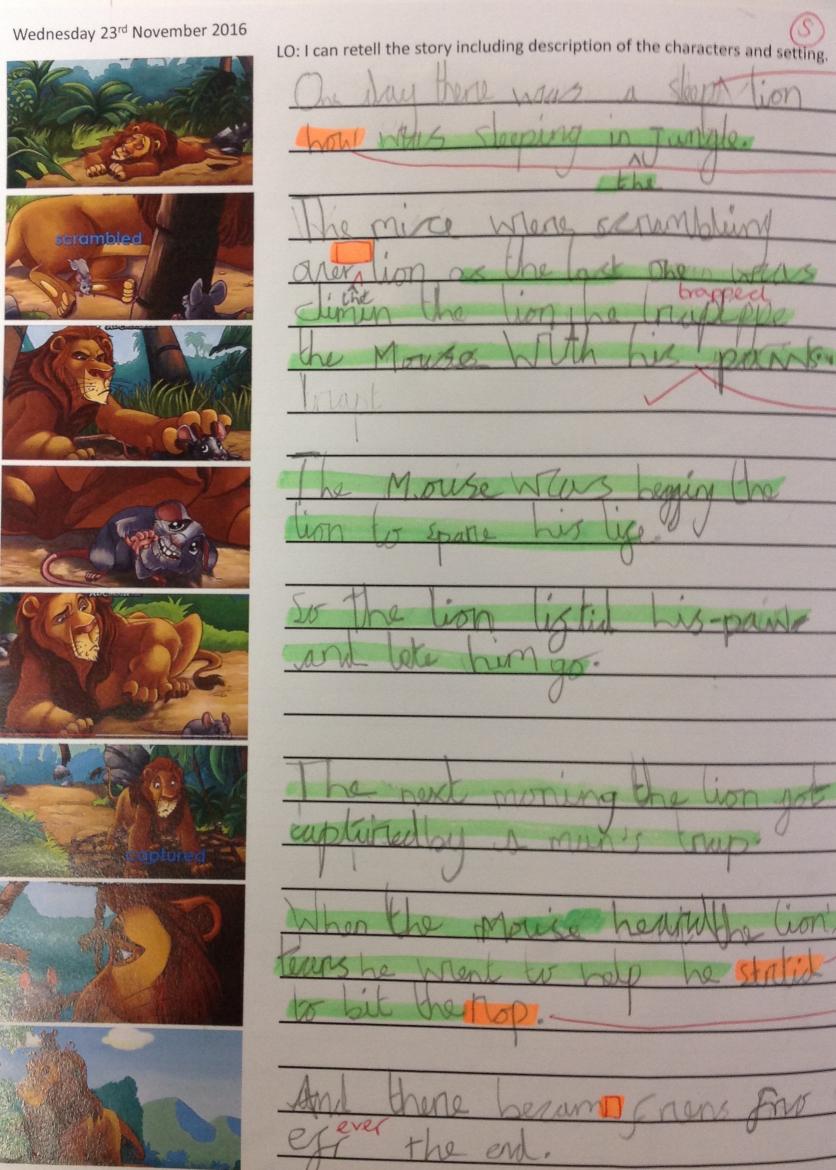 Wednesday 23rd November 2016
S
LO: I can retell the story including description of the characters and setting.
One day there was a sleept lion
how was sleeping in Jungle.
the
The mice were scrambling
scrambled
over lion as the last one was
the
trapped
climin the lion he
the Mouse With his paws.
trapt
The Mouse was begging the
lion to spare his life.
So the lion liftid his paw
and lete him go.
The next morning the lion got
capturted by a man's trap
captured
When the Mouse heard the lion's
tears he went to help he stratid
to bit the rop.
And there becam frens fro
efr ever the end.